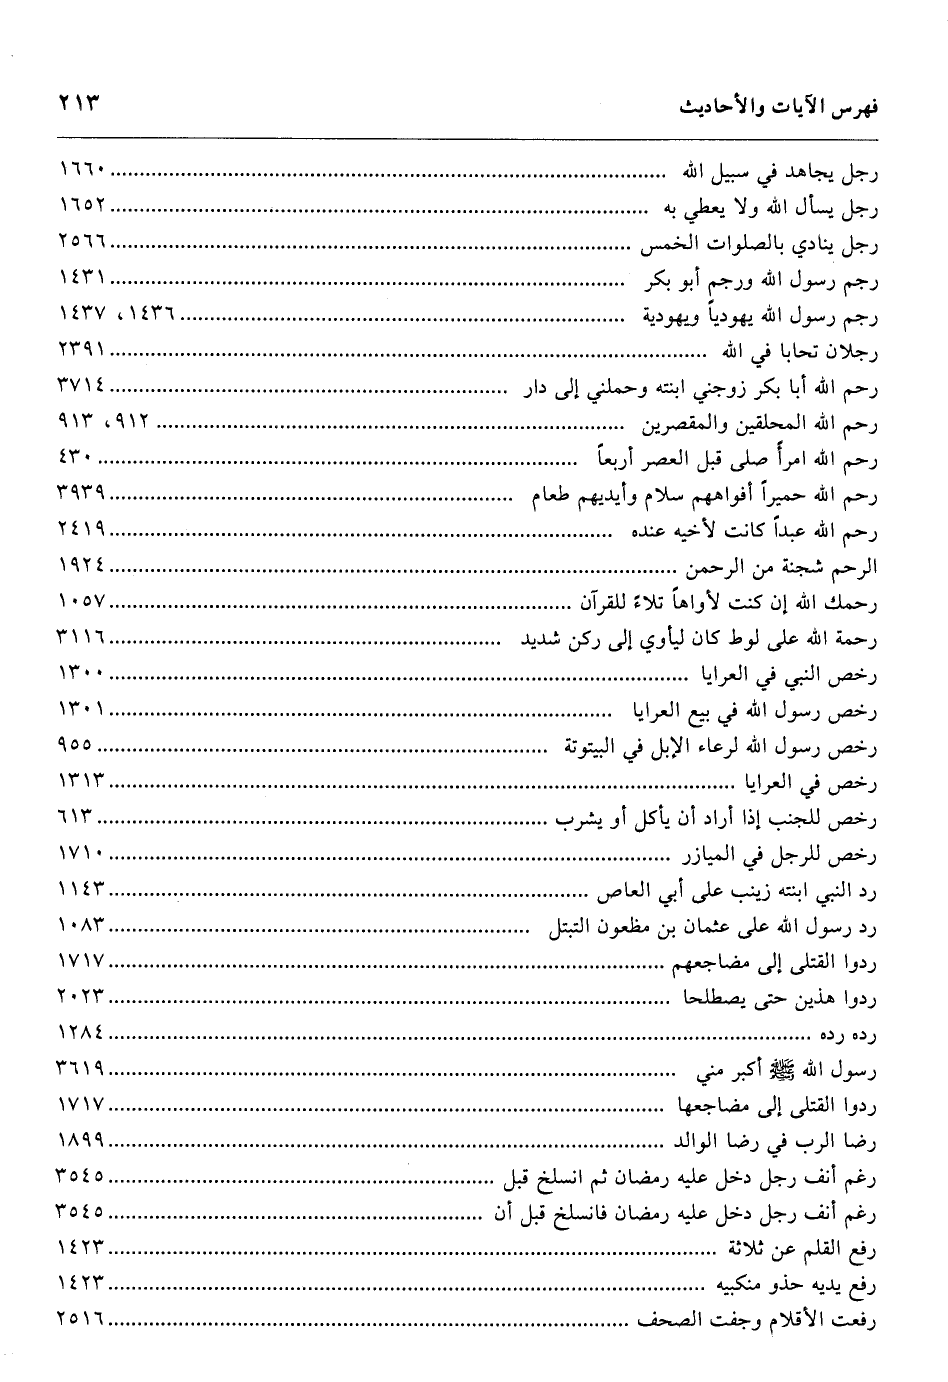 فهرس الآيات والأحاديث ٢١٣
رجل يجاهد في سبيل الله ........ ١٦٦٠
رجل يسأل الله ولا يعطي به ........ ١٦٥٢
رجل ينادي بالصلوات الخمس ........ ٢٥٦٦
رجم رسول الله ورجم أبو بكر ........ ١٤٣١
رجم رسول الله يهودياً ويهودية ........ ١٤٣٦، ١٤٣٧
رجلان تحابا في الله ........ ٢٣٩١
رحم الله أبا بكر زوجني ابنته وحملني إلى دار ........ ٣٧١٤
رحم الله المحلقين والمقصرين ........ ٩١٢، ٩١٣
رحم الله امرأً صلى قبل العصر أربعاً ........ ٤٣٠
رحم الله حميراً أفواههم سلام وأيديهم طعام ........ ٣٩٣٩
رحم الله عبداً كانت لأخيه عنده ........ ٢٤١٩
الرحم شجنة من الرحمن ........ ١٩٢٤
رحمك الله إن كنت لأواهاً تلاءً للقرآن ........ ١٠٥٧
رحمة الله على لوط كان ليأوي إلى ركن شديد ........ ٣١١٦
رخص النبي في العرايا ........ ١٣٠٠
رخص رسول الله في بيع العرايا ........ ١٣٠١
رخص رسول الله لرعاء الإبل في البيتوتة ........ ٩٥٥
رخص في العرايا ........ ١٣١٣
رخص للجنب إذا أراد أن يأكل أو يشرب ........ ٦١٣
رخص للرجل في الميازر ........ ١٧١٠
رد النبي ابنته زينب على أبي العاص ........ ١١٤٣
رد رسول الله على عثمان بن مظعون التبتل ........ ١٠٨٣
ردوا القتلى إلى مضاجعهم ........ ١٧١٧
ردوا هذين حتى يصطلحا ........ ٢٠٢٣
رده رده ........ ١٢٨٤
رسول الله ﷺ أكبر مني ........ ٣٦١٩
ردوا القتلى إلى مضاجعها ........ ١٧١٧
رضا الرب في رضا الوالد ........ ١٨٩٩
رغم أنف رجل دخل عليه رمضان ثم انسلخ قبل ........ ٣٥٤٥
رغم أنف رجل دخل عليه رمضان فانسلخ قبل أن ........ ٣٥٤٥
رفع القلم عن ثلاثة ........ ١٤٢٣
رفع يديه حذو منكبيه ........ ١٤٢٣
رفعت الأقلام وجفت الصحف ........ ٢٥١٦